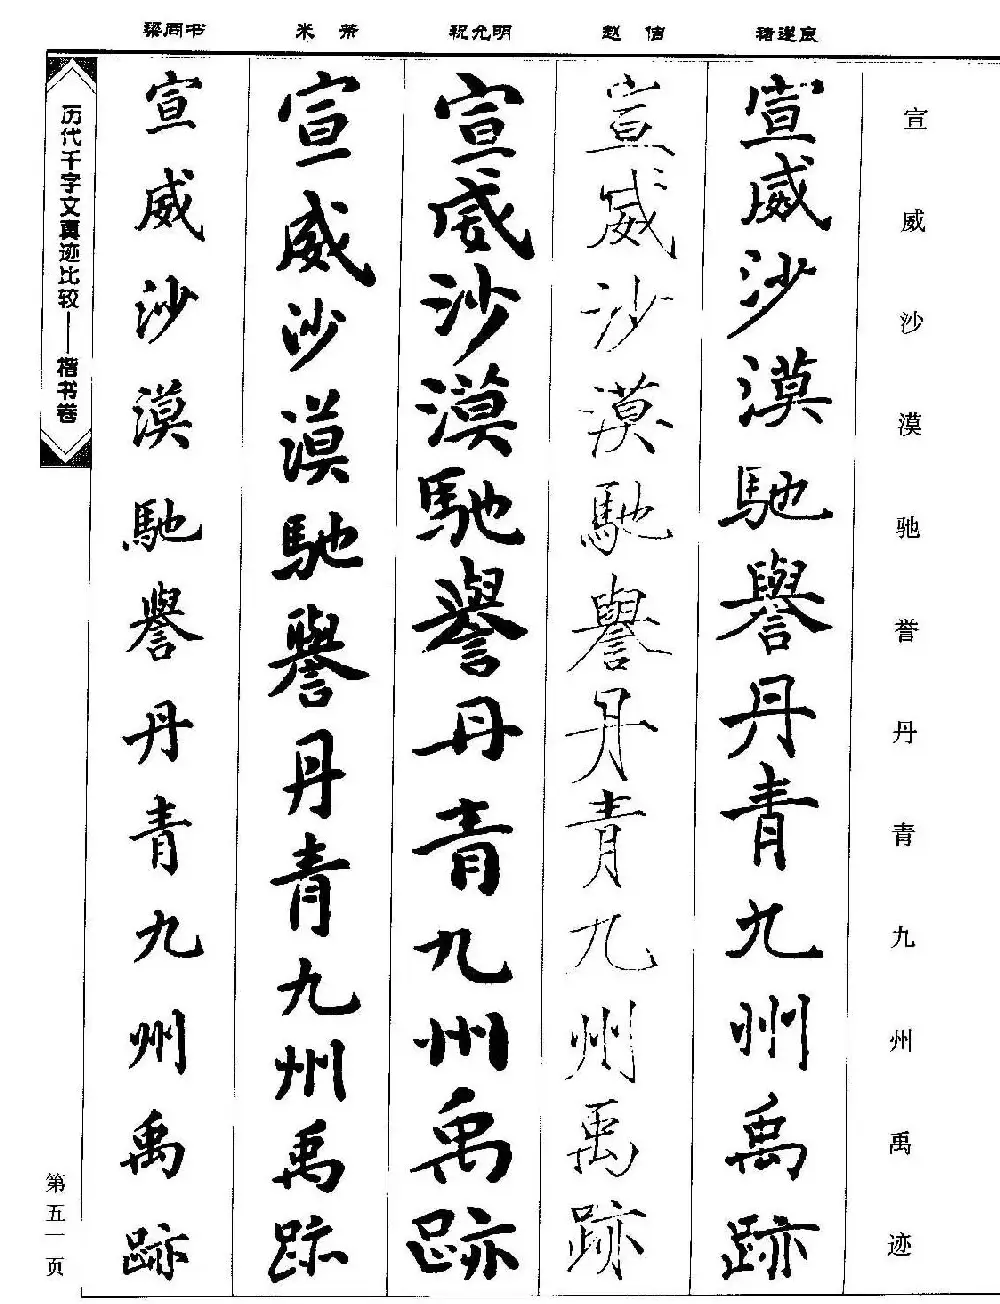 历代千字文真迹比较——楷书卷
宣威沙漠驰誉丹青九州禹迹
褚遂良
宣威沙漠馳譽丹青九州禹跡
赵佶
宣威沙漠馳譽丹青九州禹跡
祝允明
宣威沙漠馳譽丹青九州禹跡
米芾
宣威沙漠馳譽丹青九州禹跡
梁同书
宣威沙漠馳譽丹青九州禹跡
第五一页